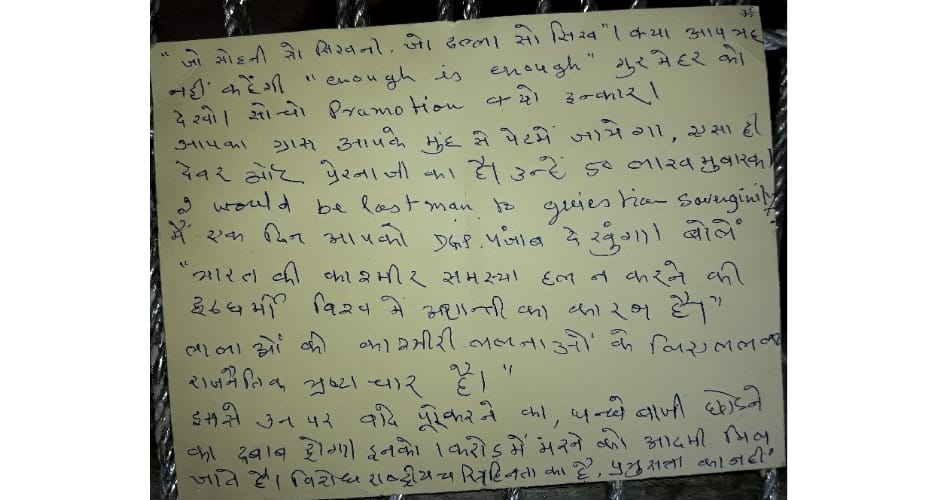 ॐ
"जो सोहनी सो सिखनी. जो ढल्ला सो सिख"। क्या आप यह
नहीं कहेंगी "enough is enough" गुरमेहर को
देखो। सोचो Pramotion क्यो इन्कार।
आपका ग्रास आपके मुंह से पेटमें जायेगा, एसा ही
देवर और प्रेरनाजी का है। उन्हें ५० लाख मुबारक।
I would be last man to question
मैं एक दिन आपको DGP. पंजाब देखुंगा। बोलें
"भारत की काश्मीर समस्या हल न करने की
हठधर्मी विश्व में अशान्ती का कारण है।"
लालाओं की काश्मीरी ललनाओं के लिए
राजनैतिक भ्रष्टाचार है।"
इससे उन पर वादे पूरे करने का, छोडने
का दबाव होगा। इनको १ करोड में मरने को आदमी मिल
जाते है। विरोध राष्ट्रीय चरित्रहिनता का है. का नहीं